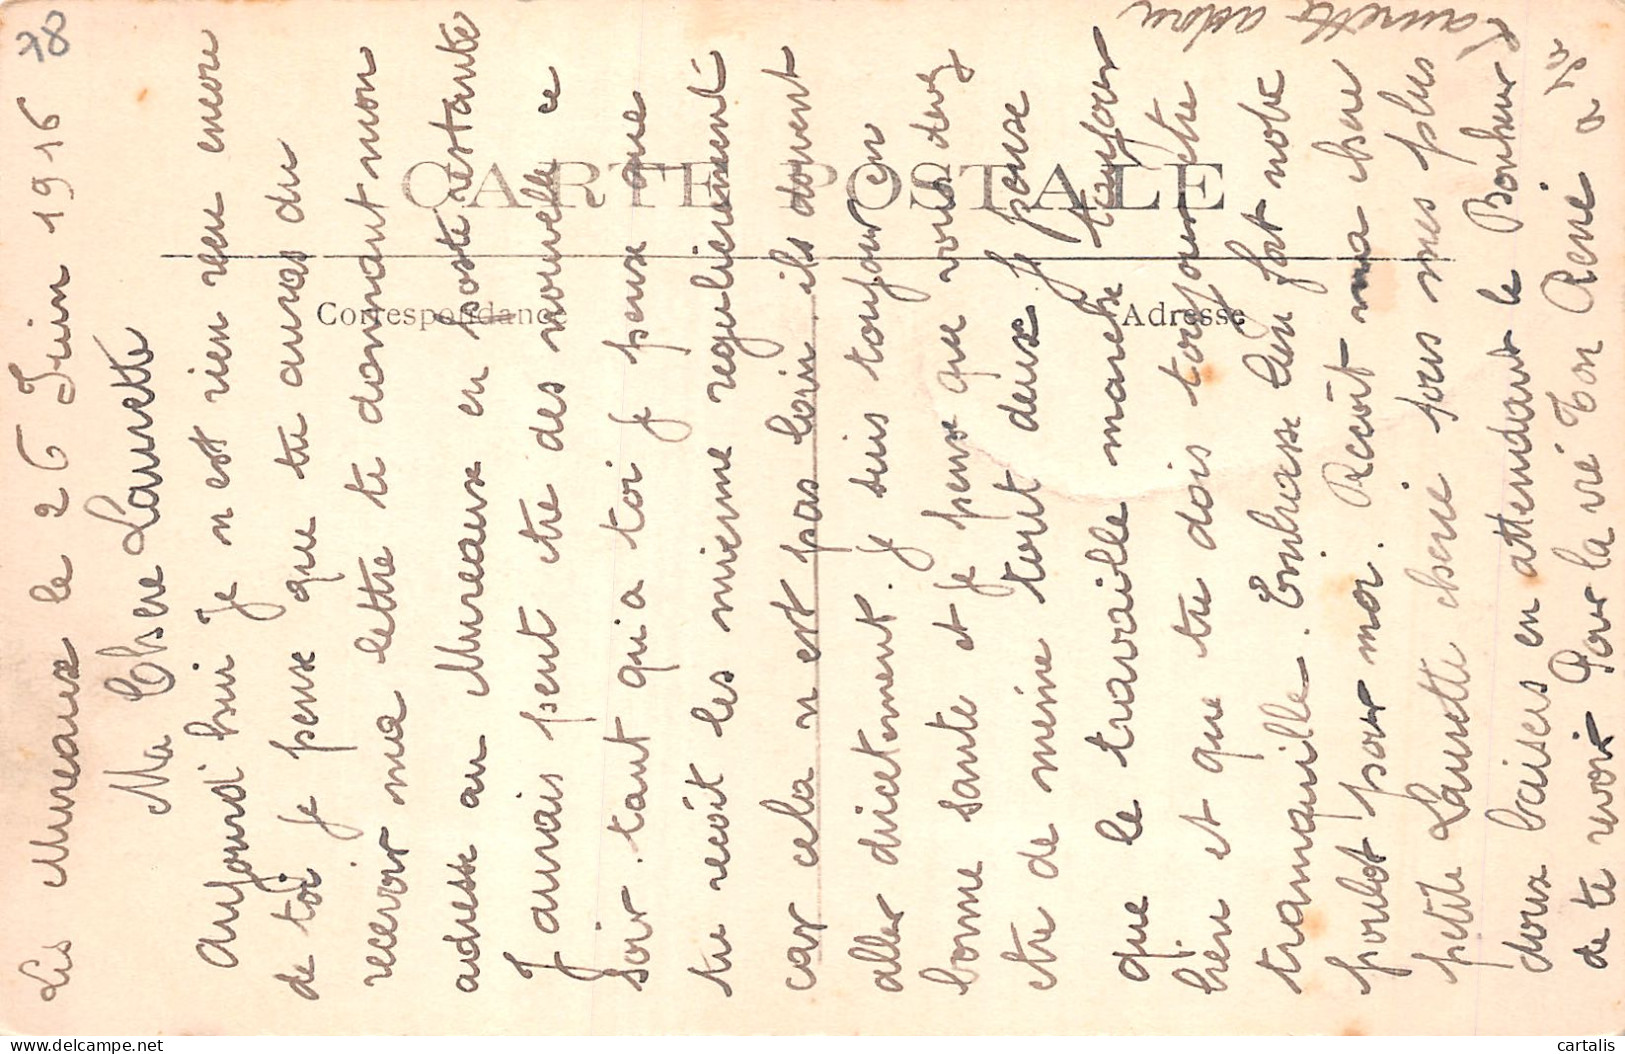 78
Les Mureaux le 26 Juin 1916
Ma Chere Laurette
Aujourd'hui Je n est rien reu encore
de toi je pense que tu auras du
recevoir ma lettre te donnant mon
adresse au Mureaux en poste restante
J aurais peut etre des nouvelle ce
soir. tant qu'a toi je pense que
tu recoit les mienne regulierement
car cela n est pas loin ils doivent
aller directement. je suis toujour en
bonne sante et je pense que vous devez
etre de meine tout deux. Je pense
que le travaille marche toujour
bien et que tu dois toujour etre
tranquille. Embrasse bien fort notre
poulot pour moi. Recoit ma chere
petite Laurette cherie tous mes plus
doux baisers en attendant le Bonheur
de te revoir Pour la vie Ton René a sa
Laurette adoré
CARTE POSTALE
Correspondance
Adresse
cartalis
www.delcampe.net